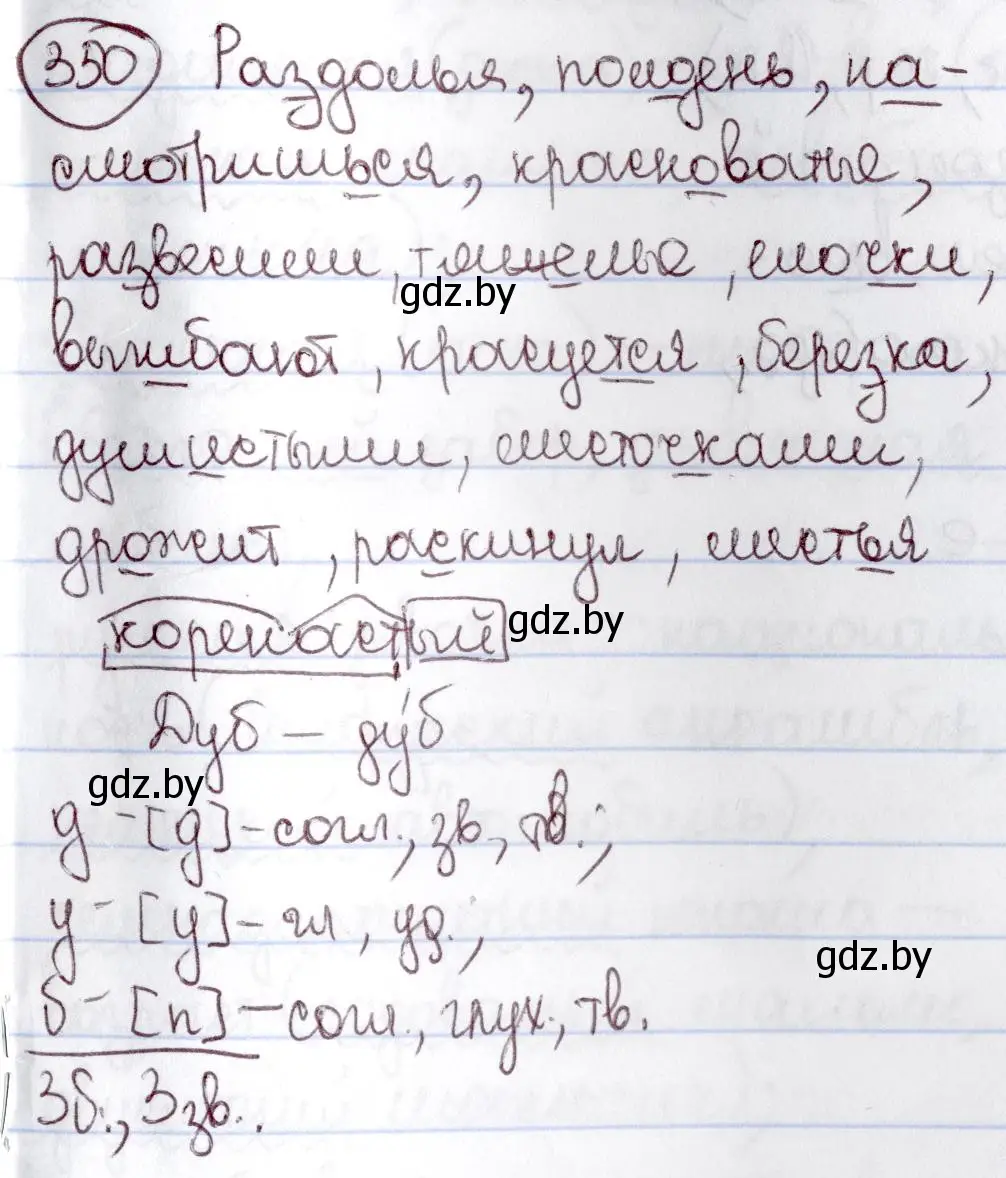 350 Раздолья, полдень, на-
смотришься, красноватые,
развесили, тяжелые, елочки,
gdz.by
выгибают, красуется, березка,
душистыми, листочками,
дрожит, раскинул, листья
коренастый gdz.by
Дуб – ду́б
gdz.by
д – [д] – согл., зв., тв.,
у – [у] – гл., уд.,
gdz.by
б – [п] – согл., глух., тв.
3б., 3зв..